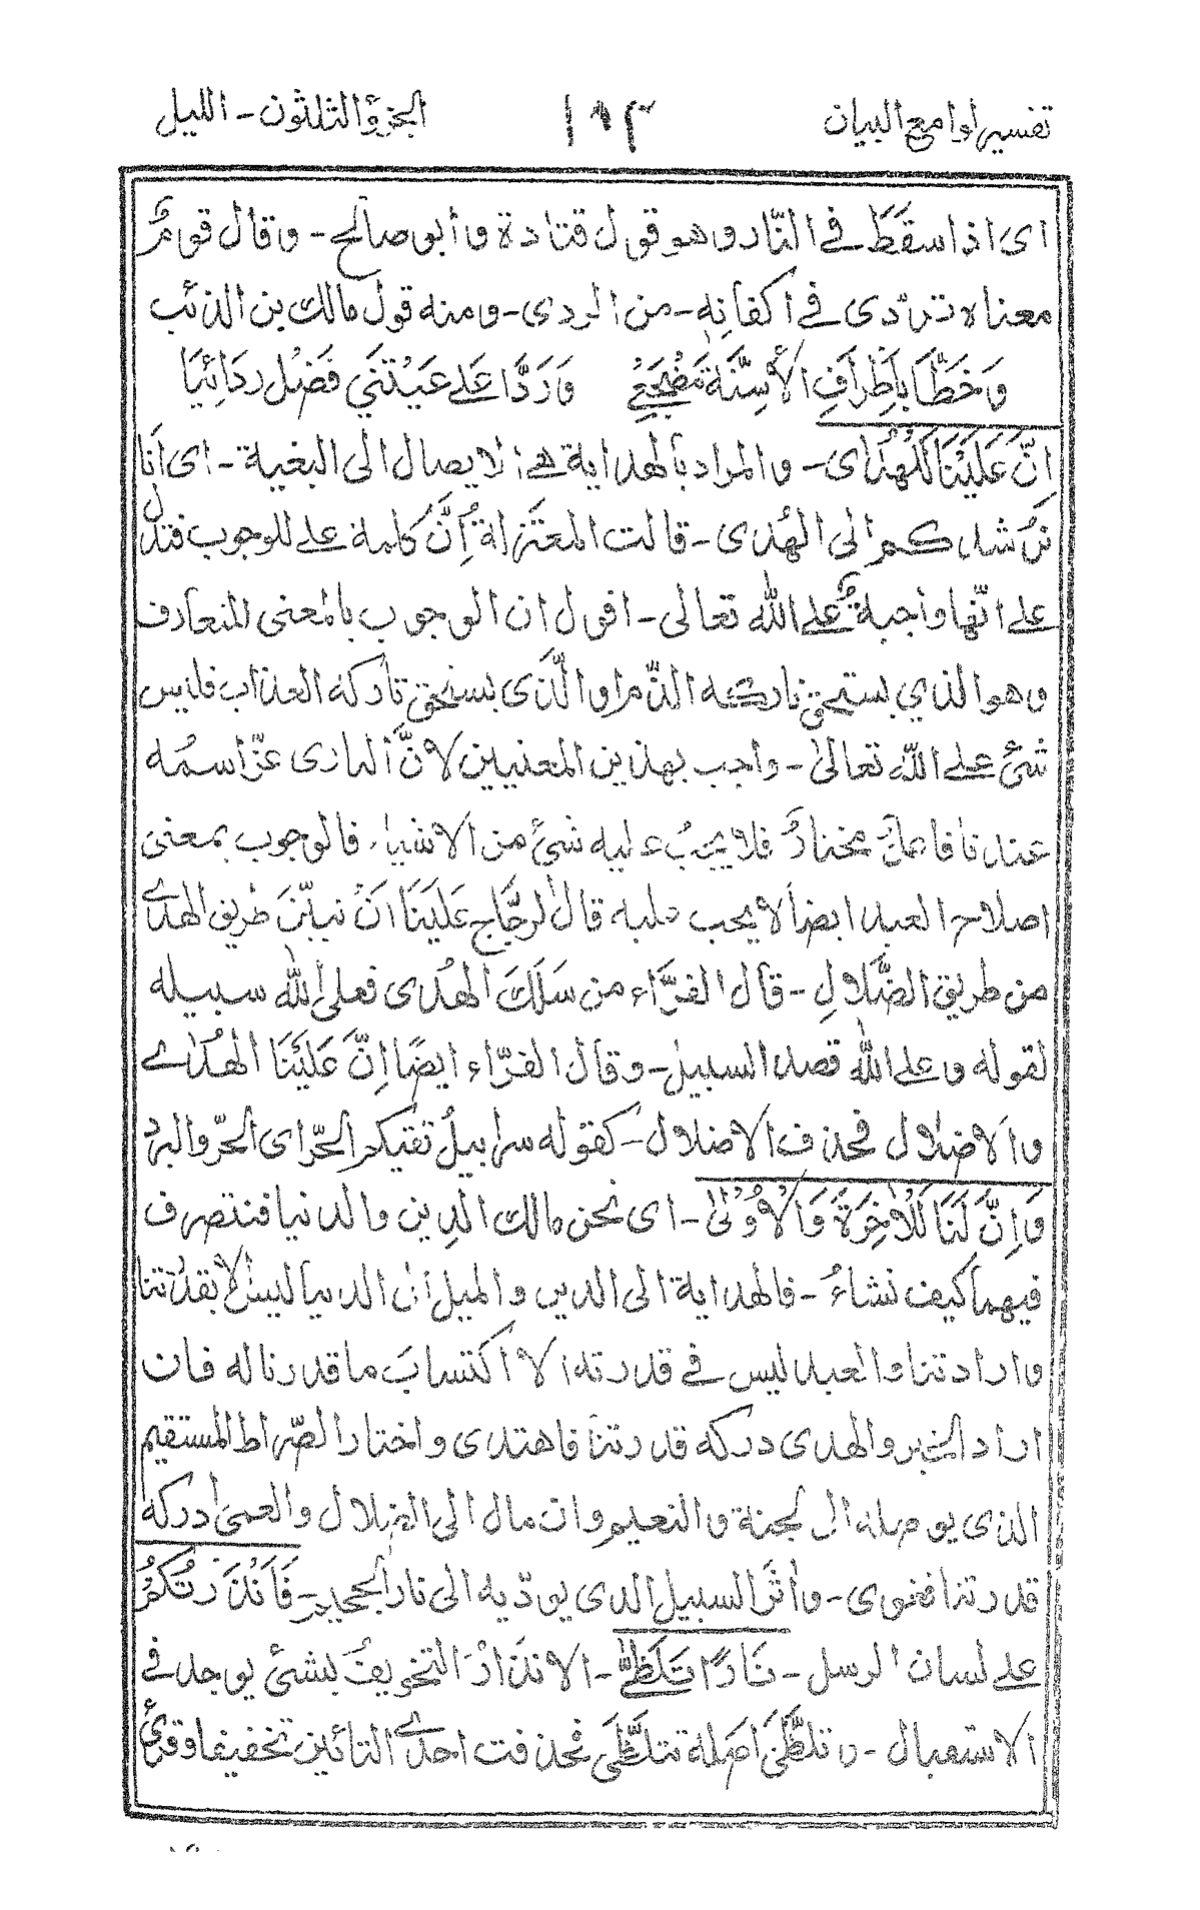 تفسير لوامع البيان ١٩٣ الجزؤ الثلثون - الليل
اى اذا سقَطَ فے النّار وهو قول قتادة وأبو صالح - وقال قومٌ
معناه تردّى فے أكفانِه - من الردى - ومنه قول مالك بن الذئب
وَخَطَّا بِأَطْرَافِ الأَسِنَّةِ مَضْجَعِے وَرَدَّا عَلے عَيْنَيَّ فَضْلَ رِدَائِيَا
اِنَّ عَلَيْنَا لَلْهُدٰى - والمراد بالهداية هے الايصال الى البغية - اى اَنا
نُرشدكم الى الهُدى - قالت المعتزلة اِنَّ كلمة علے للوجوب فتدل
علے انّها واجبةٌ علے الله تعالى - اقول ان الوجوب بالمعنى المتعارف
وهو الذي يستحق تاركه الذّم او الَّذى يستحق تاركه العذاب فليس
شئ علے اللّه تعالىٰ - واجب بهذين المعنيين لانَّ البارى عزّ اسمُه
عندنا فاعلٌ مختارٌ فلا يجبُ عليه شئ من الاشياء. فالوجوب بمعنى
اصلاح العبد ايضاً لا يجب عليه قال الزجّاج عَلَيْنَا انْ نبيّنَ طريق الهدے
من طريق الضّلالِ - قال الفرّاء من سَلَكَ الهُدى فعلى الله سبيله
لقوله وعلے الله قصد السبيل - وقال الفرّاء ايضًا اِنَّ عَلَيْنَا الهُدٰے
والاضلال فحذف الاضلال - كقوله سرابيلُ تقيكم الحرّ اى الحرّ والبرد
وَاِنَّ لَنَا لَلْاٰخِرَةَ وَالْاُوْلىٰ - اى نحن مالك الدِين والدنيا فنتصرف
فيهما كيف نشاءُ - فالهداية الى الدين والميل الى الدنيا ليس الا بقدرتنا
وارادتنا والعبد ليس فے قدرته الا اكتسابَ ما قدرنا له فان
اراد الخير والهدى دركه قدرتنا فاهتدى واختار الصّراط المستقيم
الذى يوصله الى الجنة والنعيم وان مال الى الضلال والعمىٰ ادركه
قدرتنا فغوى - واٰثَر السبيل الذى يودّيه الى نار الجحيم - فَاَنْذَرْتُكُمْ
علے لسان الرسل - نَارًا تَلَظّىٰ - الانذارُ التخويفُ بشئ يوجد فے
الاستقبال - و تلظَّىٰ اصله تتلظَّى فحذفت احدے التائين تخفيفا وقرئ